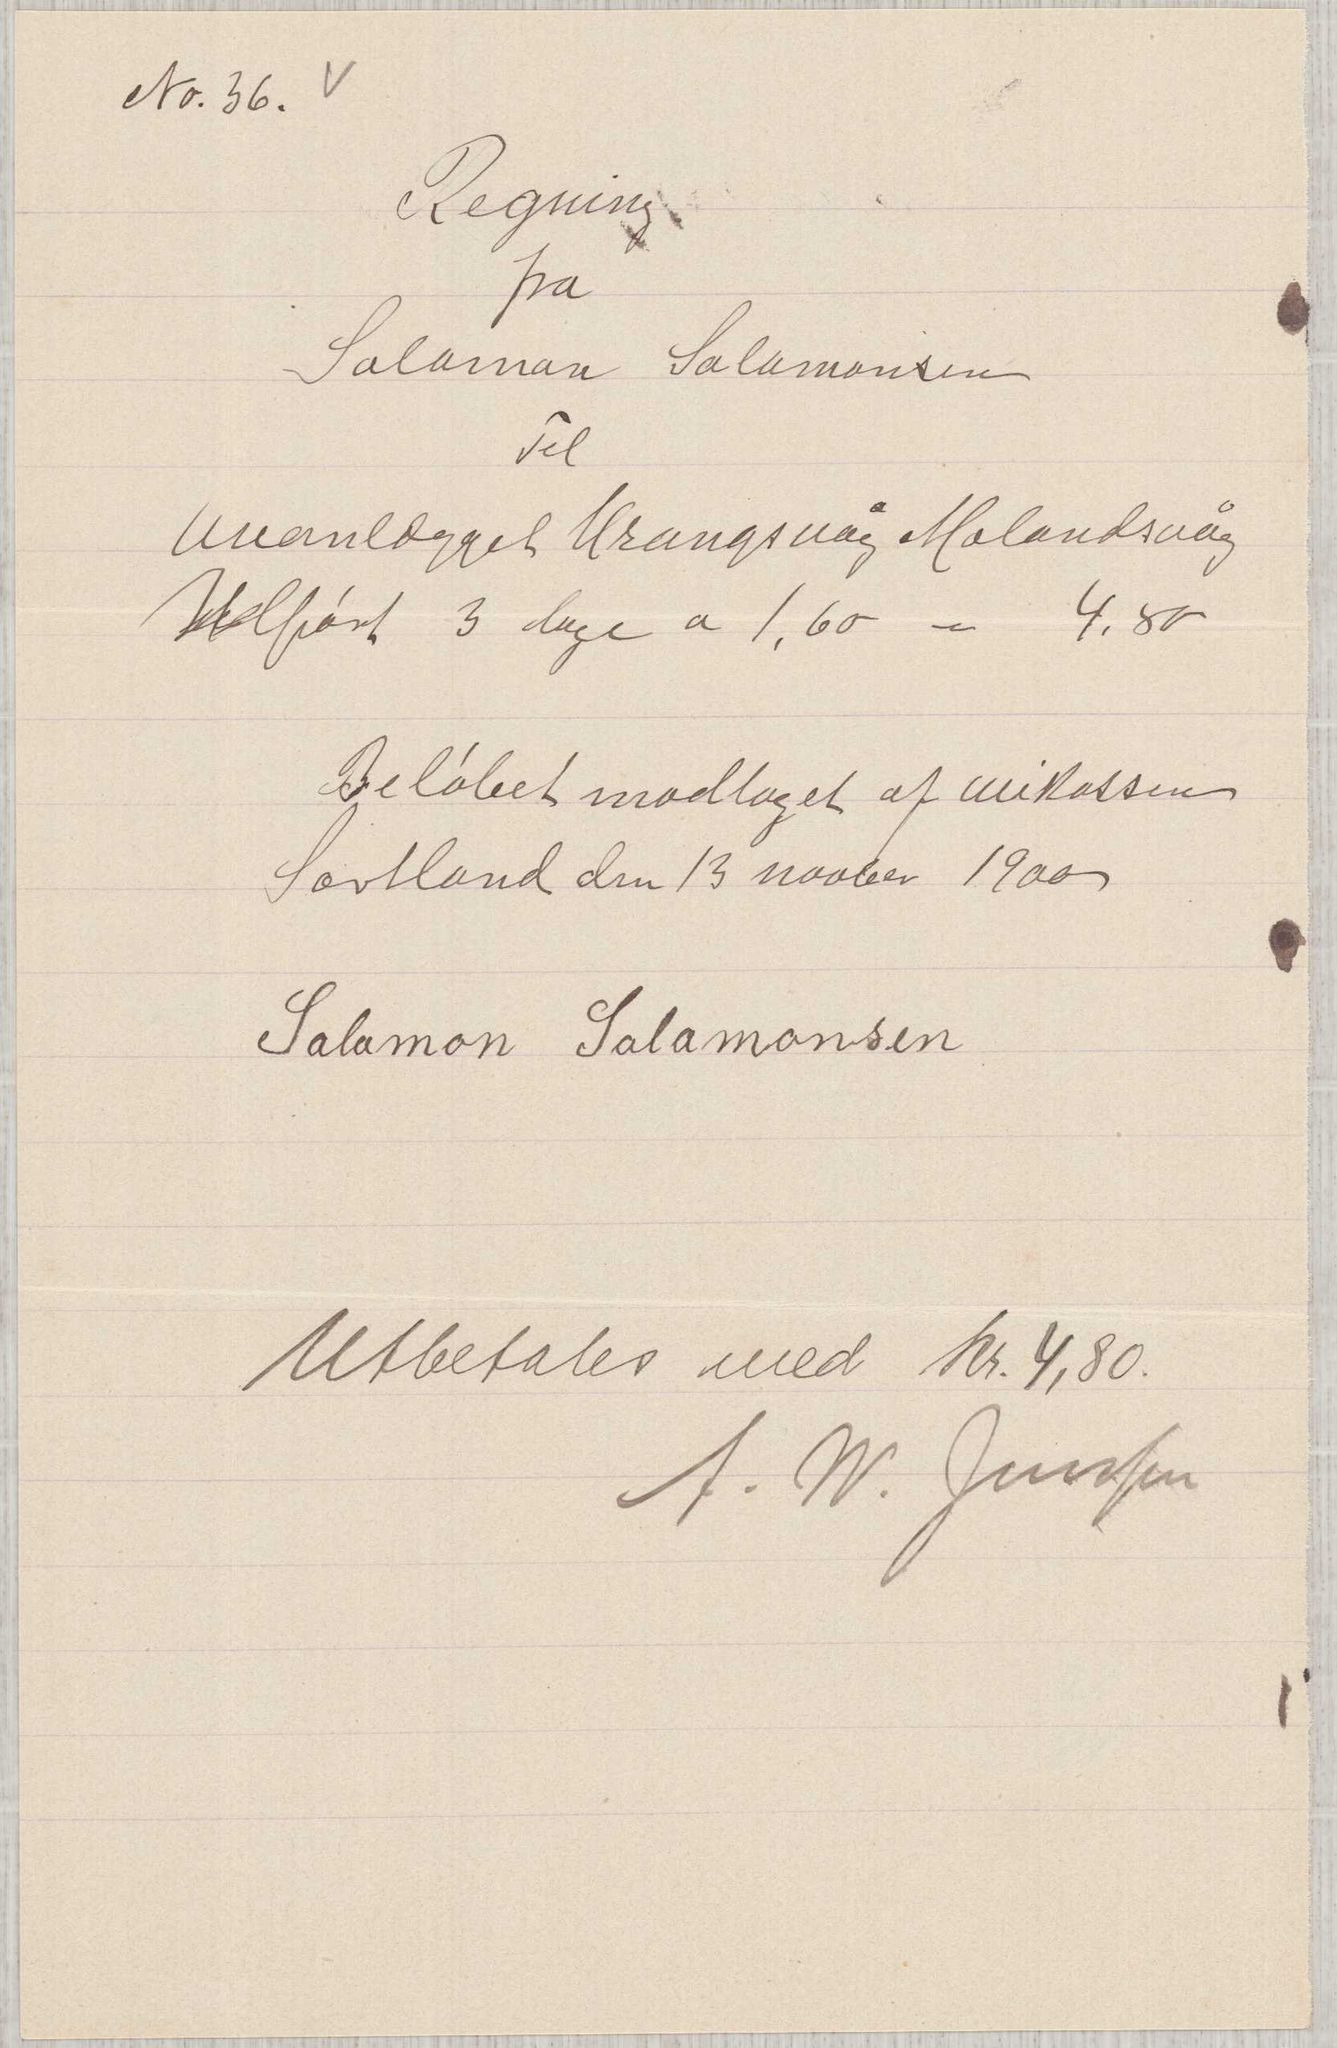 No. 36. V
Regning
fra
Salaman Salamonsen
Til
Uveanlægget Urangsvåg Molandsvåg
Udført 3 dage a 1,60 = 4.80
Beløbet modtaget af
Sortland den 13 1900
Salamon Salamonsen
Utbetales med kr. 4,80.
A. W. Jenssen